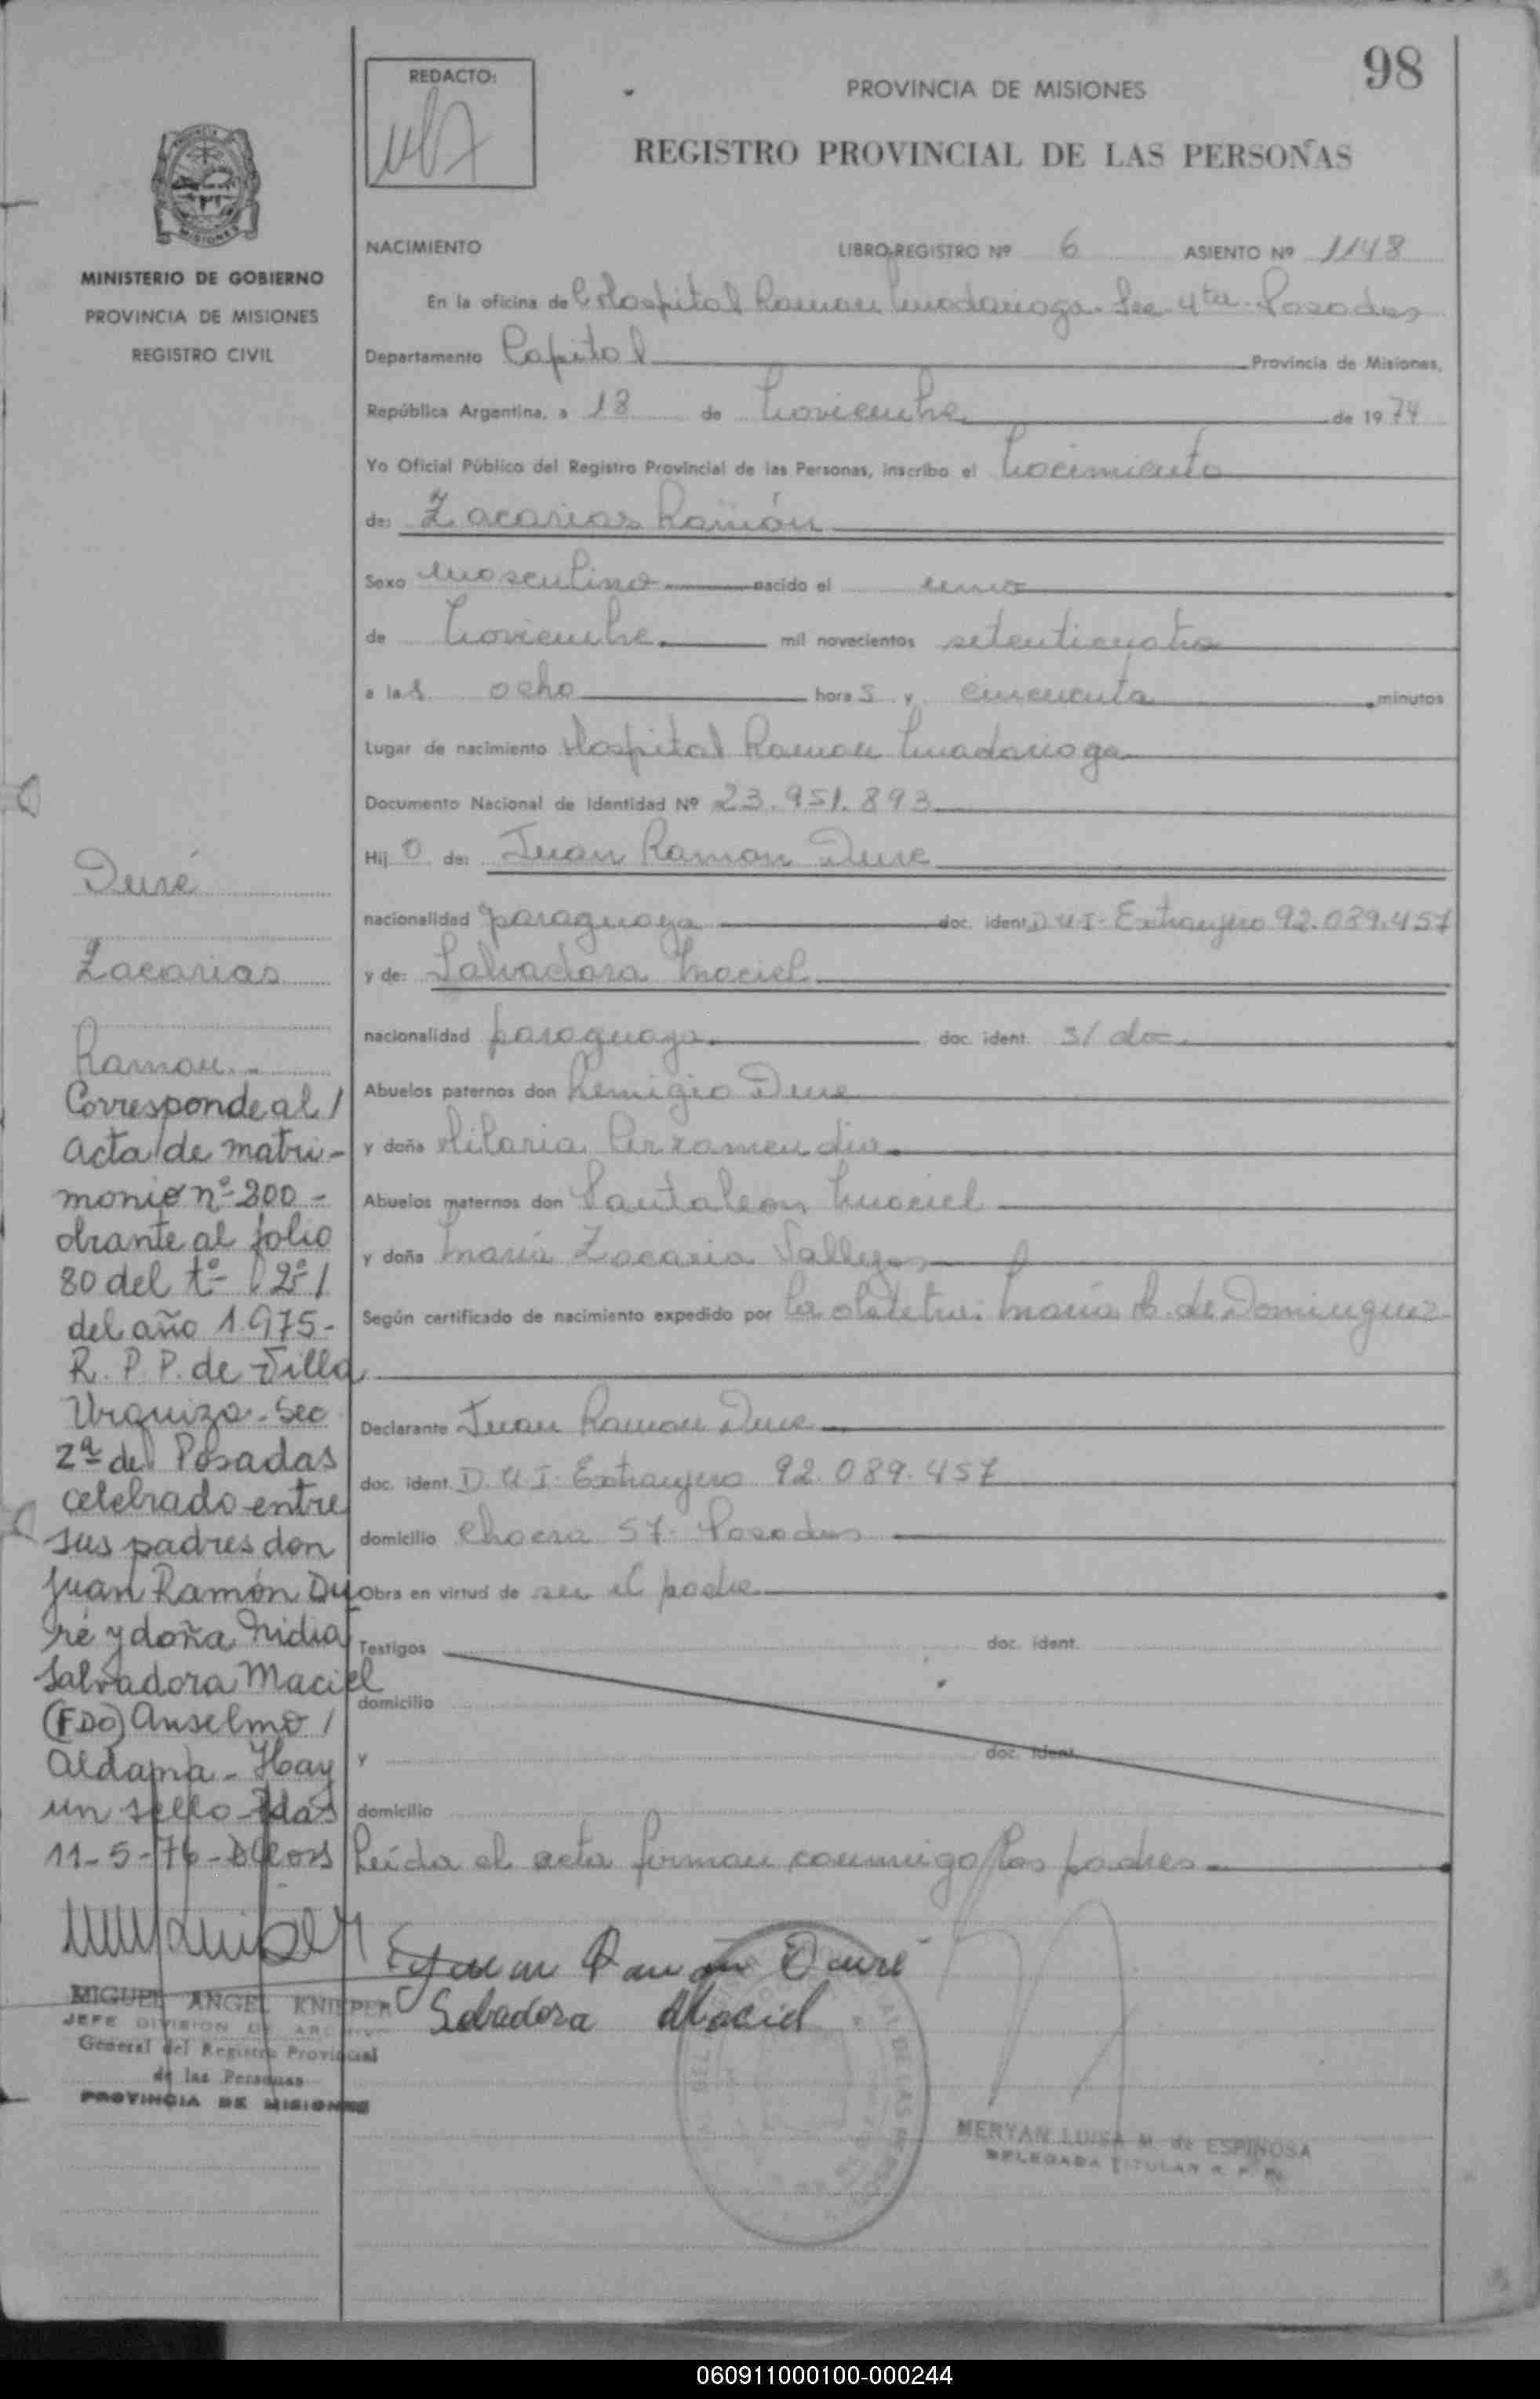 98
REDACTO:
PROVINCIA DE MISIONES
REGISTRO PROVINCIAL DE LAS PERSONAS
MISIONES
MINISTERIO DE GOBIERNO
PROVINCIA DE MISIONES
REGISTRO CIVIL
NACIMIENTO LIBRO-REGISTRO Nº 6 ASIENTO Nº 1148
En la oficina del Hospital Ramon Madariaga. Sec. 4ta. Posadas
Departamento Capital Provincia de Misiones,
República Argentina, a 18 de Noviembre de 1974
Yo Oficial Público del Registro Provincial de las Personas, inscribo el Nacimiento
de: Zacarias Ramón
Sexo Masculino nacido el uno
de Noviembre mil novecientos setenticuatro
a las ocho horas y cincuenta minutos
Lugar de nacimiento Hospital Ramon Madariaga
Documento Nacional de Identidad Nº 23.951.893
Hijo de: Juan Ramon Dure
nacionalidad paraguaya doc. ident. D U I - Extranjero 92.089.457
y de: Salvadora Maciel
nacionalidad paraguaya doc. ident. s/ doc.
Abuelos paternos don Remigio Dure
y doña Hilaria Arxamendia
Abuelos maternos don Pantaleon Maciel
y doña María Zacaria Vallejos
Según certificado de nacimiento expedido por la obstetra: María de Dominguez
Declarante Juan Ramon Dure
doc. ident. D. U I. Extranjero 92.089.457
domicilio Chacra 57 - Posadas
Obra en virtud de ser el padre
Testigos doc. ident.
domicilio
y doc. ident.
domicilio
Leída el acta firman conmigo los padres.
Juan Ramon Duré
Salvadora Maciel
MERYAN LUISA M. de ESPINOSA
DELEGADA TITULAR R. P. P.
Duré
Zacarias
Ramon.-
Corresponde al /
acta de matri-
monio nº 200 -
obrante al folio
80 del tº- 2º /
del año 1.975-
R. P. P. de Villa
Urquiza - Sec
2ª de Posadas
celebrado entre
sus padres don
Juan Ramón Du
ré y doña Nidia
Salvadora Maciel
(FDO) Anselmo /
Aldama - Hay
un sello - Pdas
11-5-76 -
MIGUEL ANGEL KNIEPER
JEFE DIVISION DE ARCHIVO
General del Registro Provincial
de las Personas
PROVINCIA DE MISIONES
060911000100-000244